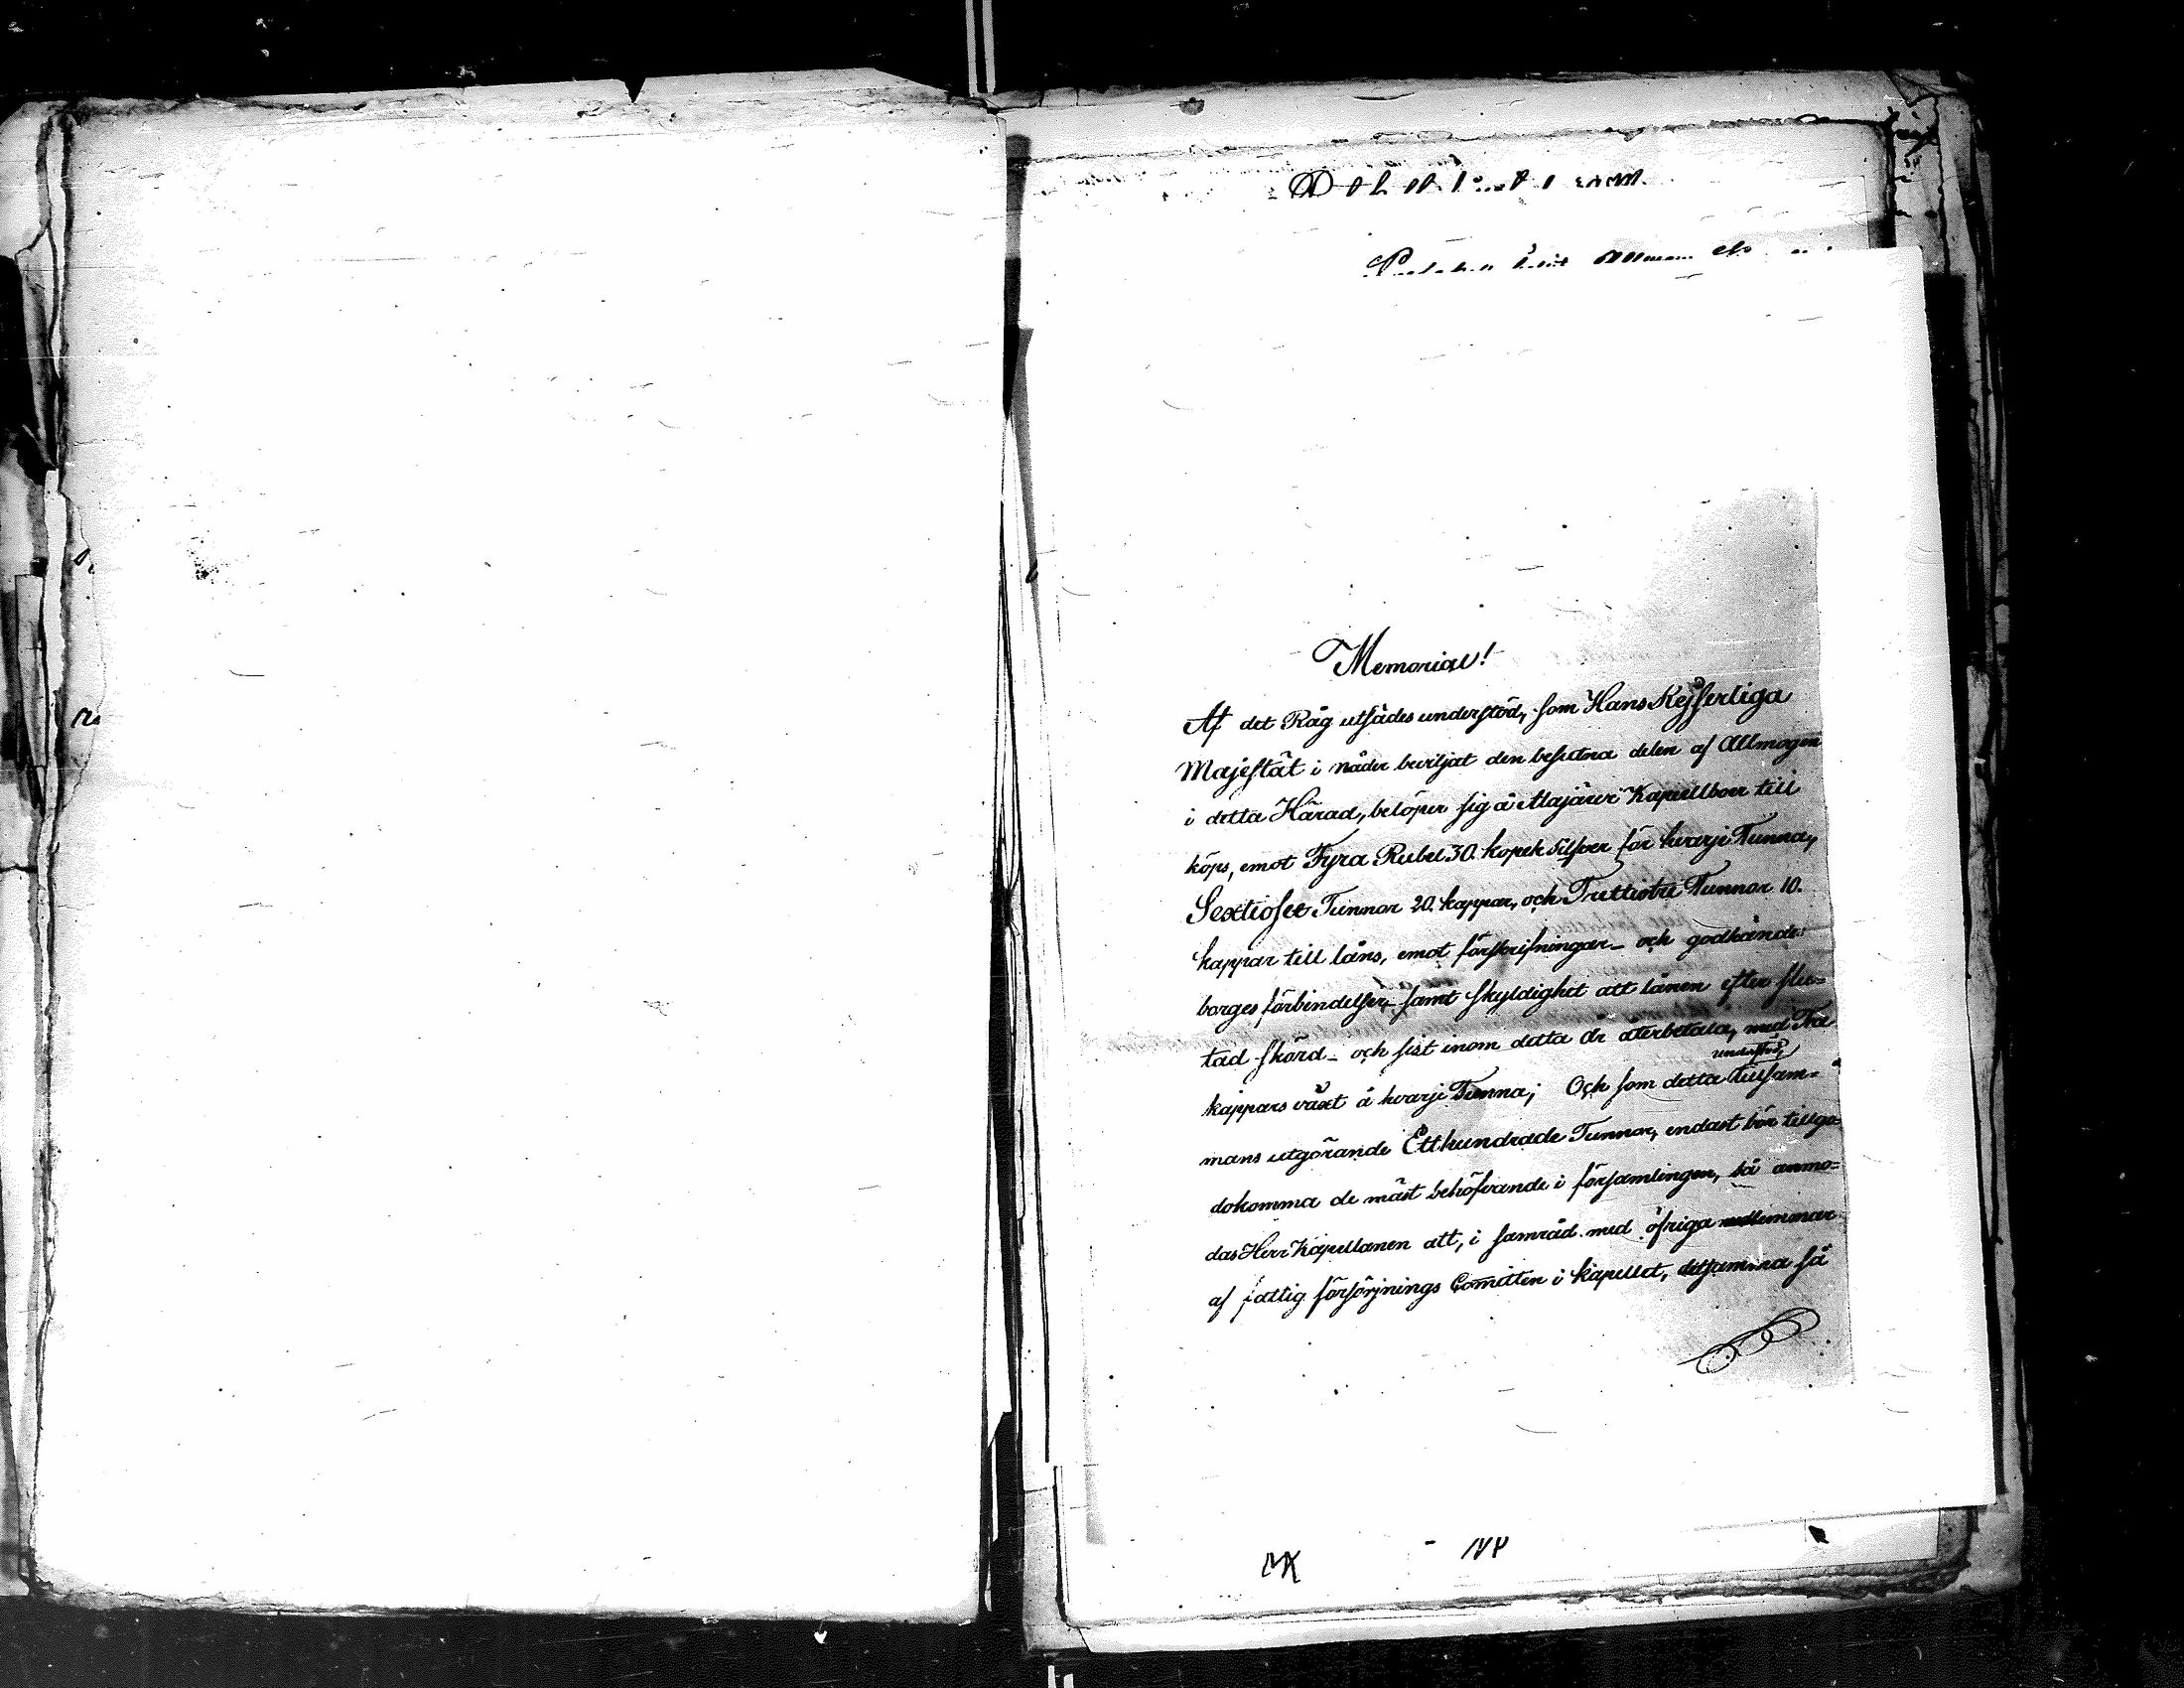 Memorial!
Af det Råg utsädes understöd, som Hans Kejserliga
Majestät i nåder beviljat den besutna delen af Allmogen
i detta Härad, belöper sig å Alajärvi Kapellboer till
köps, emot Fyra Rubel 30. kopek Silfver för hvarje Tunna,
Sextiosex Tunnor 20. kappar, och Trettiotre Tunnor 10.
kappar till låns, emot förskrifningar – och godkände
borges förbindelser – samt skyldighet att lånen efter slu=
tad skörd – och sist inom detta år återbetala, med Två
understöd,
kappars växt å hvarje Tunna; Och som detta tillsam=
mans utgörande Etthundrade Tunnor, endast bör tillgo
dokomma de mäst behöfvande i församlingen, så anmo=
das Herr Kapellanen att, i samråd med öfriga medlemmar
af fattig försörjnings Comitten i kapellet, detsamma så